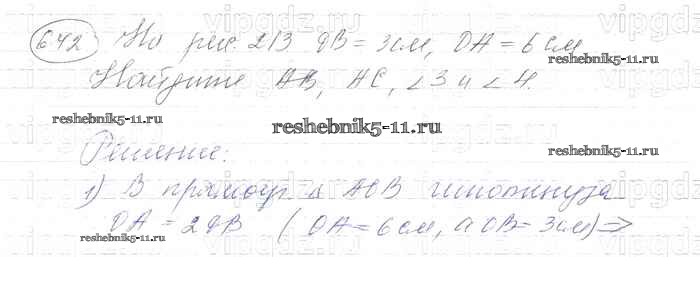 642 На рис. 213 ОВ = 3см, ОА = 6 см
Найдите АВ, АС, ∠3 и ∠4.
reshebnik5-11.ru
reshebnik5-11.ru
reshebnik5-11.ru
reshebnik5-11.ru
Решение:
1) В прямоуг. Δ АОВ гипотенуза
ОА = 2ОВ ( ОА = 6 см, а ОВ = 3см) ⇒
reshebnik5-11.ru
vipgdz.ru